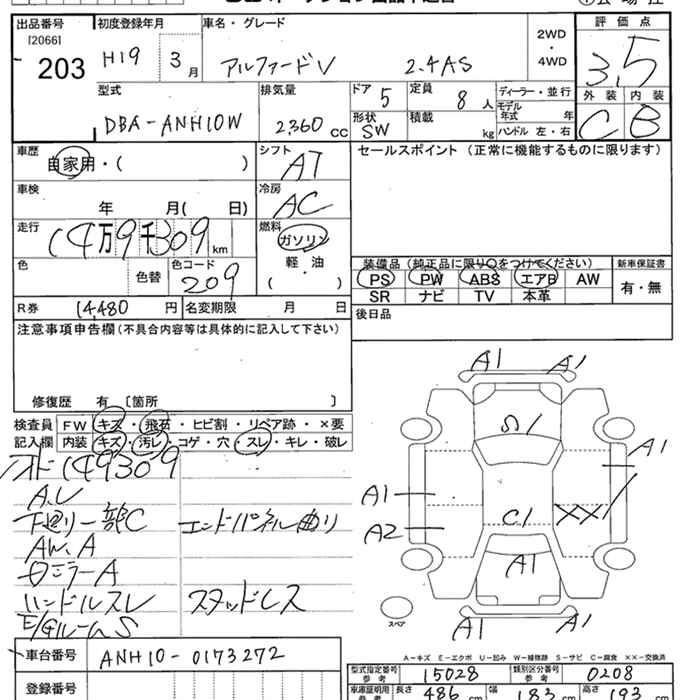 出品番号 初度登録年月 車名・グレード 評価点
[2066] 203 H19 3月 アルファードV 2.4AS 2WD・4WD 3.5
型式 排気量 ドア 5 定員 8人 ディーラー・並行 外装 内装
DBA-ANH10W 2,360cc 形状 SW 積載 kg モデル年式 年 ハンドル 左・右 C B
車歴 自家用・( ) シフト AT セールスポイント(正常に機能するものに限ります)
車検 年 月( 日) 冷房 AC
走行 14万9千309km 燃料 ガソリン
軽・油
( )
装備品(純正品に限り○をつけてください) 新車保証書
色 色替 色コード 209 PS PW ABS エアB AW 有・無
SR ナビ TV 本革
R券 14,480円 名変期限 月 日 後日品
注意事項申告欄(不具合内容等は具体的に記入して下さい)
修復歴 有 [箇所 ]
検査員 FW キズ・飛石・ヒビ割・リペア跡・×要
記入欄 内装 キズ・汚レ・コゲ・穴・スレ・キレ・破レ
149309
下廻り一部C エンドパネル曲り
AW.A
ミラーA
ハンドルスレ スタッドレス
A1 A1
S1
A1
A1
C1 XX
A2
A1
A1 A1
スペア
A-キズ E-エクボ U-凹み W-補修跡 S-サビ C-腐食 XX-交換済
車台番号 ANH10-0173272
登録番号
型式指定番号 参考 15028 類別区分番号 参考 0208
車庫証明用 参考 長さ 486 cm 幅 183 cm 高さ 193 cm